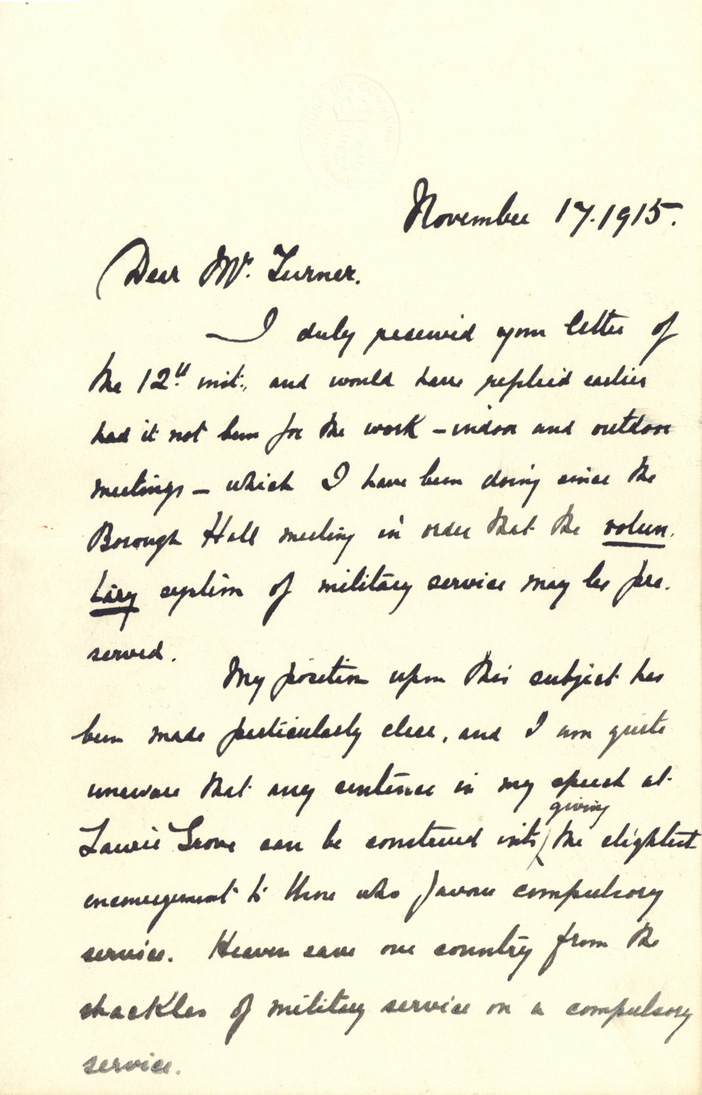 November 17. 1915.
Dear Mr. Turner.
I duly received your letter of
the 12th inst., and would have replied earlier
had it not been for the work - indoor and outdoor
meetings - which I have been doing since the
Borough Hall meeting in order that the volun-
tary system of military service may be pre-
served.
My position upon this subject has
been made particularly clear, and I am quite
unaware that any sentence in my speech at
giving
Laurie Grove can be construed into the slightest
encouragement to those who favour compulsory
service. Heaven save our country from the
shackles of military service on a compulsory
service.